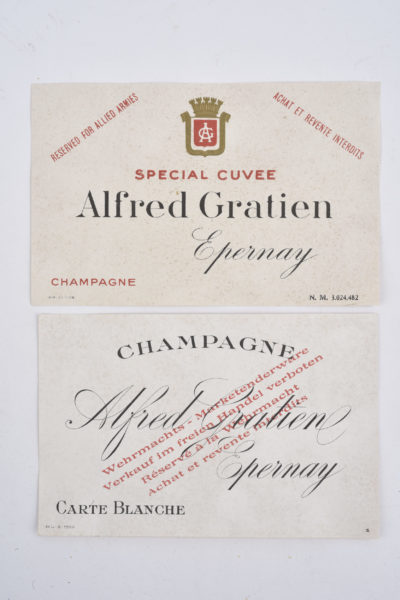 RESERVED FOR ALLIED ARMIES
ACHAT ET REVENTE INTERDITS
SPECIAL CUVEE
Alfred Gratien
Epernay
CHAMPAGNE
N. M. 3.024.482
CHAMPAGNE
Alfred Gratien
Wehrmachts - Marketenderware
Verkauf im freien Handel verboten
Réservé à la Wehrmacht
Achat et revente interdits
Epernay
CARTE BLANCHE